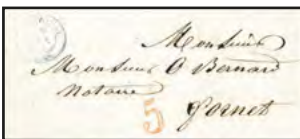 Monsieur
Monsieur O Bernard
Notaire
Jornet
5